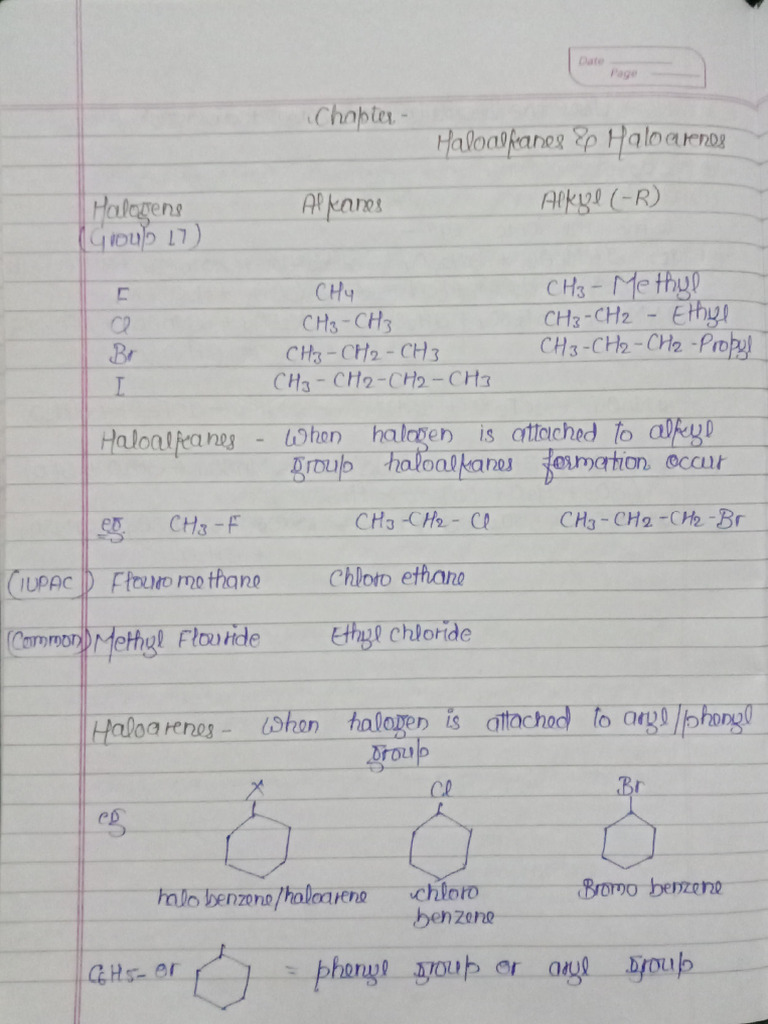 Date
Page
Chapter-
Haloalkanes & Haloarenes
Halogens Alkanes Alkyl (-R)
(Group 17)
F CH4 CH3 - Methyl
Cl CH3-CH3 CH3-CH2 - Ethyl
Br CH3-CH2-CH3 CH3-CH2-CH2-Propyl
I CH3-CH2-CH2-CH3
Haloalkanes - When halogen is attached to alkyl
group haloalkanes formation occur
eg. CH3-F CH3-CH2-Cl CH3-CH2-CH2-Br
(IUPAC) Flouromethane Chloro ethane
(Common) Methyl Flouride Ethyl chloride
Haloarenes - When halogen is attached to aryl/phenyl
group
X Cl Br
eg
halo benzene/haloarene chloro Bromo benzene
benzene
C6H5- or = phenyl group or aryl group